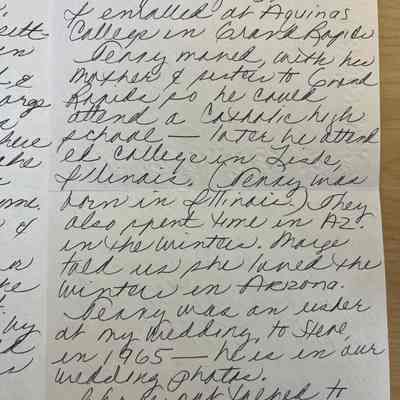 & enrolled at Aquinas
College in Grand Rapids
Terry moved, with his
mother & sister to Grand
Rapids so he could
attend a Catholic high
school — later he attend
ed college in Lisle,
Illinois. (Terry was
born in Illinois.) They
also spent time in AZ.
in the winters. Marge
told us she loved the
winters in Arizona.
Terry was an usher
at my wedding, to Steve,
in 1965 — he is in our
wedding photos.